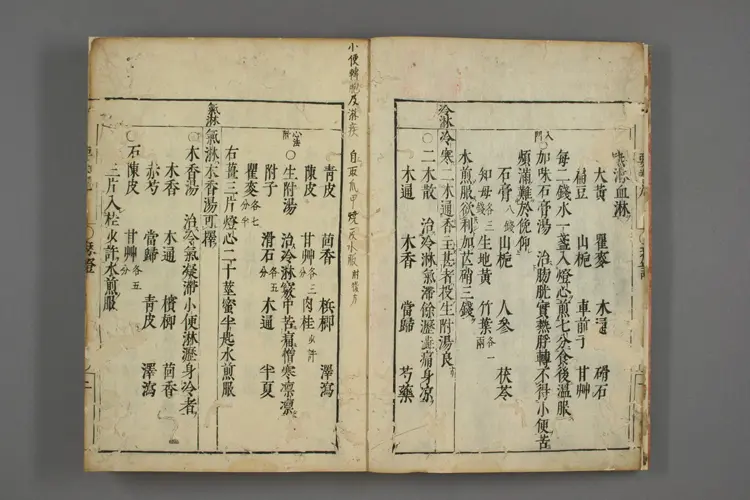 熱沸血淋
大黃 瞿麥 木通 滑石
萹豆 山梔 車前子 甘艸
每二錢水一盞入燈心煎七分食後溫服
入門
○加味石膏湯 治膀胱實熱脬轉不得小便苦
煩滿難於俛仰
石膏八錢 山梔 人參 茯苓
知母各三錢 生地黃 竹葉各一兩
水煎服欲利加芒硝三錢
冷淋
冷寒二木通香主甚者投生附湯良
○二木散 治冷淋氣滯餘瀝澁痛身凉
木通 木香 當歸 芍藥
青皮 茴香 梹榔 澤瀉
陳皮 甘艸各三分 肉桂少許
心法附
○生附湯 治冷淋竅中苦痛憎寒凛凛
附子 滑石各五分 木通 半夏
瞿麥各七分半
右薑三片燈心二十莖蜜半匙水煎服
氣淋
氣淋木香湯可擇
○木香湯 治冷氣凝滯小便淋瀝身冷者
木香 木通 檳榔 茴香
赤芍 當歸 青皮 澤瀉
○陳皮 甘艸各五分
三片入桂少許水煎服
小便轉脬及淋疾 自兩爪甲燒灰水服